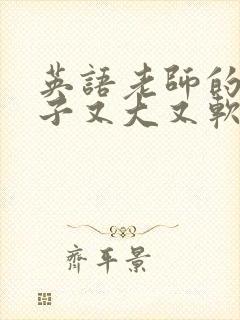 英語老師的
子又大又軟
齊平景